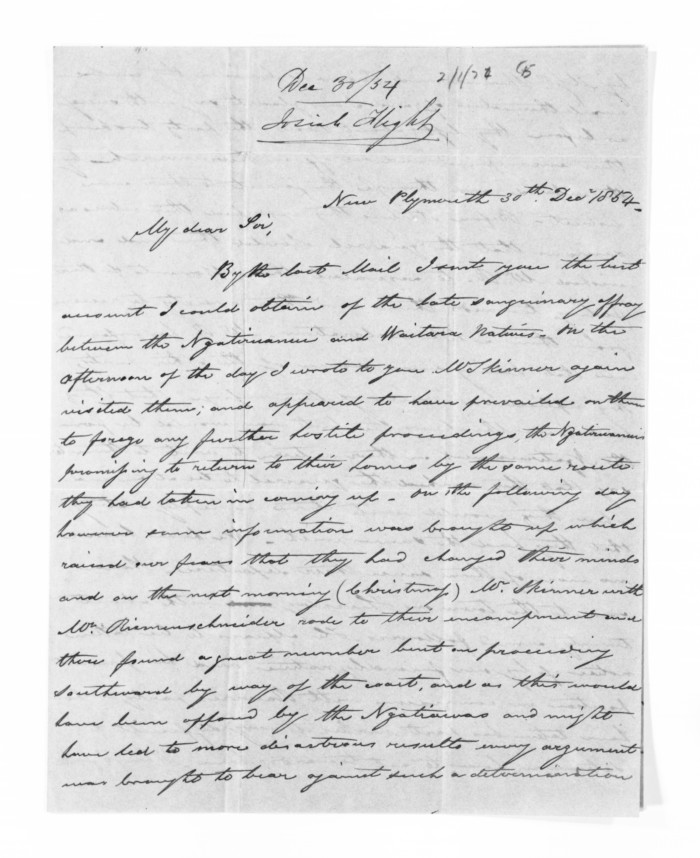 Dec 30/54
Josiah Flight
New Plymouth 30th Decr 1854
My dear Sir,
By the last Mail I sent you the best
account I could obtain of the late sanguinary affray
between the Ngatiruanui and Waitara Natives. On the
afternoon of the day I wrote to you Mr Skinner again
visited them; and appeared to have prevailed on them
to forego any further hostile proceedings, the Ngatiruanuis
promising to return to their homes by the same route
they had taken in coming up - On the following day
however some information was brought up which
raised our fears that they had changed their minds
and on the next morning (Christmas) Mr. Skinner with
Mr. Riemenschneider rode to their encampment and
there found a great number bent on proceeding
Southward by way of the coast, and as this would
have been opposed by the Ngatiawas and might
have led to more disastrous results every argument
was brought to bear against such a determination